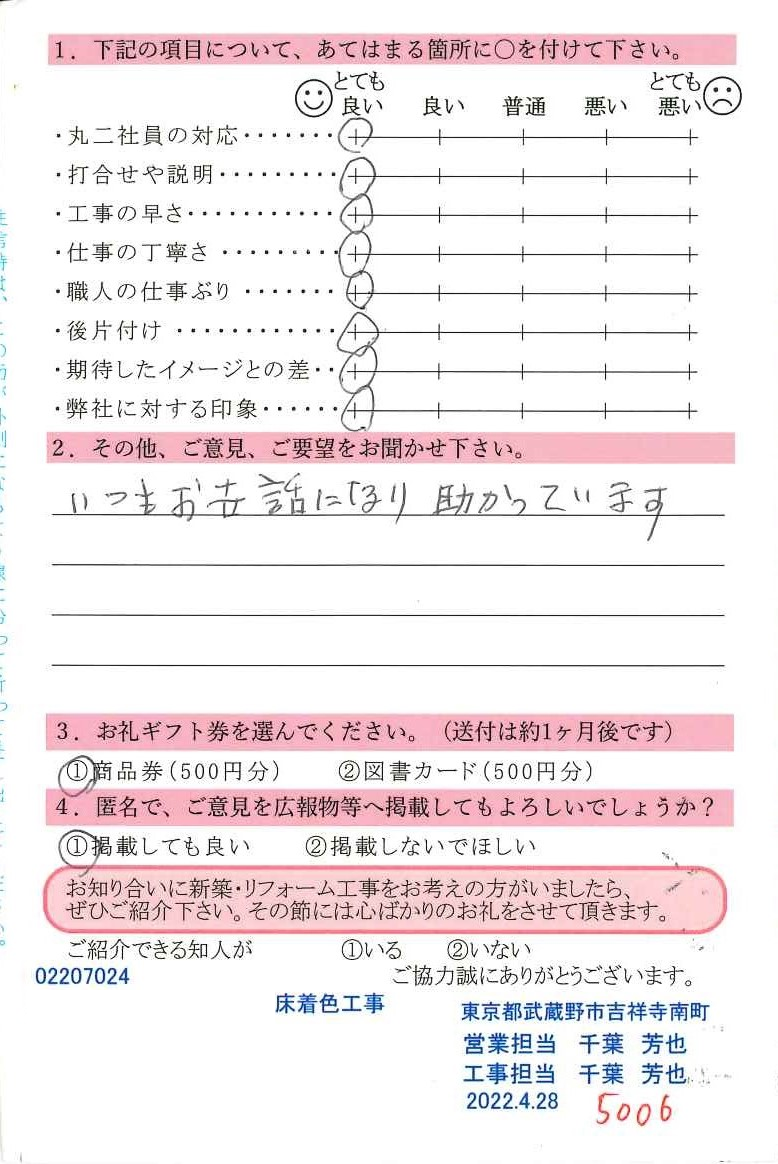 1．下記の項目について、あてはまる箇所に○を付けて下さい。
とても良い 良い 普通 悪い とても悪い
・丸二社員の対応・・・・・・・
・打合せや説明・・・・・・・・・
・工事の早さ・・・・・・・・・・・
・仕事の丁寧さ・・・・・・・・・
・職人の仕事ぶり・・・・・・・
・後片付け・・・・・・・・・・・・
・期待したイメージとの差・・
・弊社に対する印象・・・・・・
2．その他、ご意見、ご要望をお聞かせ下さい。
いつもお世話になり 助かっています
3．お礼ギフト券を選んでください。（送付は約1ヶ月後です）
①商品券（500円分） ②図書カード（500円分）
4．匿名で、ご意見を広報物等へ掲載してもよろしいでしょうか？
①掲載しても良い ②掲載しないでほしい
お知り合いに新築・リフォーム工事をお考えの方がいましたら、
ぜひご紹介下さい。その節には心ばかりのお礼をさせて頂きます。
ご紹介できる知人が ①いる ②いない
02207024 ご協力誠にありがとうございます。
床着色工事 東京都武蔵野市吉祥寺南町
営業担当 千葉 芳也
工事担当 千葉 芳也
2022.4.28 5006